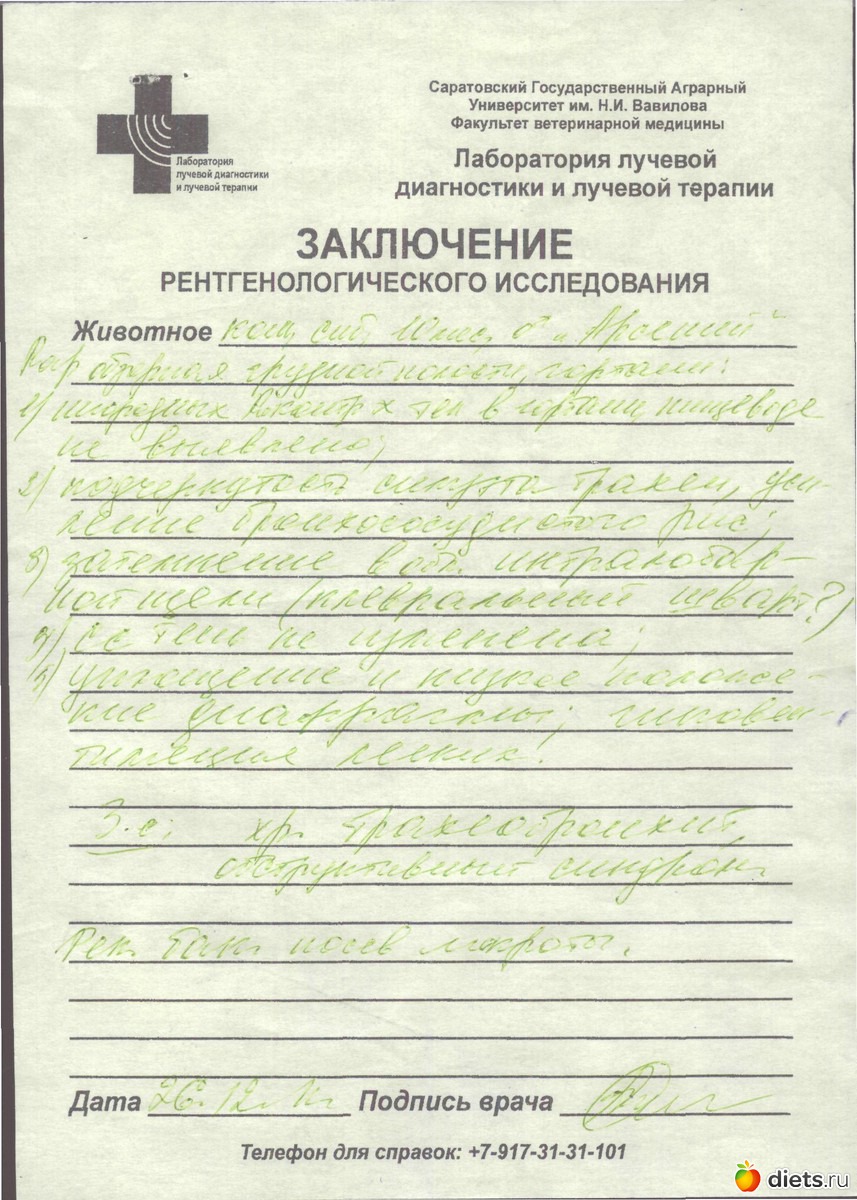 Лаборатория
лучевой диагностики
и лучевой терапии
Саратовский Государственный Аграрный
Университет им. Н.И. Вавилова
Факультет ветеринарной медицины
Лаборатория лучевой
диагностики и лучевой терапии
ЗАКЛЮЧЕНИЕ
РЕНТГЕНОЛОГИЧЕСКОГО ИССЛЕДОВАНИЯ
Животное кош. сиб. 10 мес. ♂ „Арсений"
обзорная грудной полости, гортани:
1) инородных Rконтр х тел в гортани, пищеводе
не выявлено;
2) подчеркнутость силуэта трахеи, уси-
ление бронхососудистого рис;
3) затемнение в обл. интралобар-
ной щели (плевральный шварт?)
4) тень не изменена;
5) уплощение и низкое положе-
ние диафрагмы; гиповен-
тиляция легких.
З-е: хр. трахеобронхит,
обструктивный синдром.
Рек. Бак. посев мокроты.
Дата 26. 12. Подпись врача
Телефон для справок: +7-917-31-31-101
diets.ru